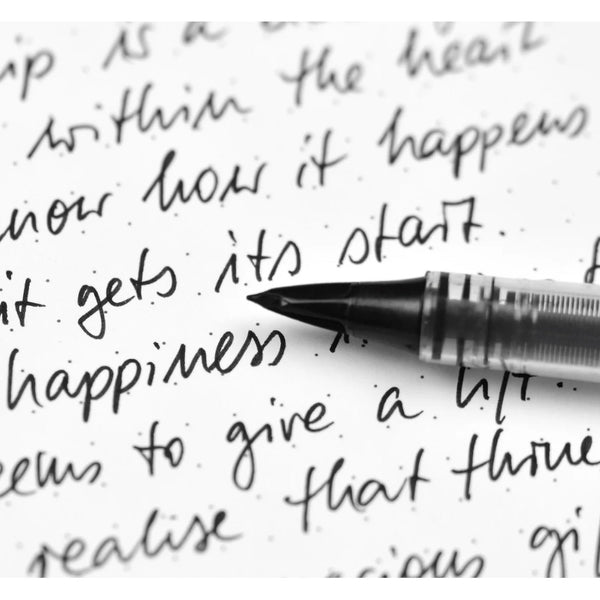 ip is a
within the heart
now how it happens
it gets its start.
happiness
eems to give a lift
realise that
cious gi